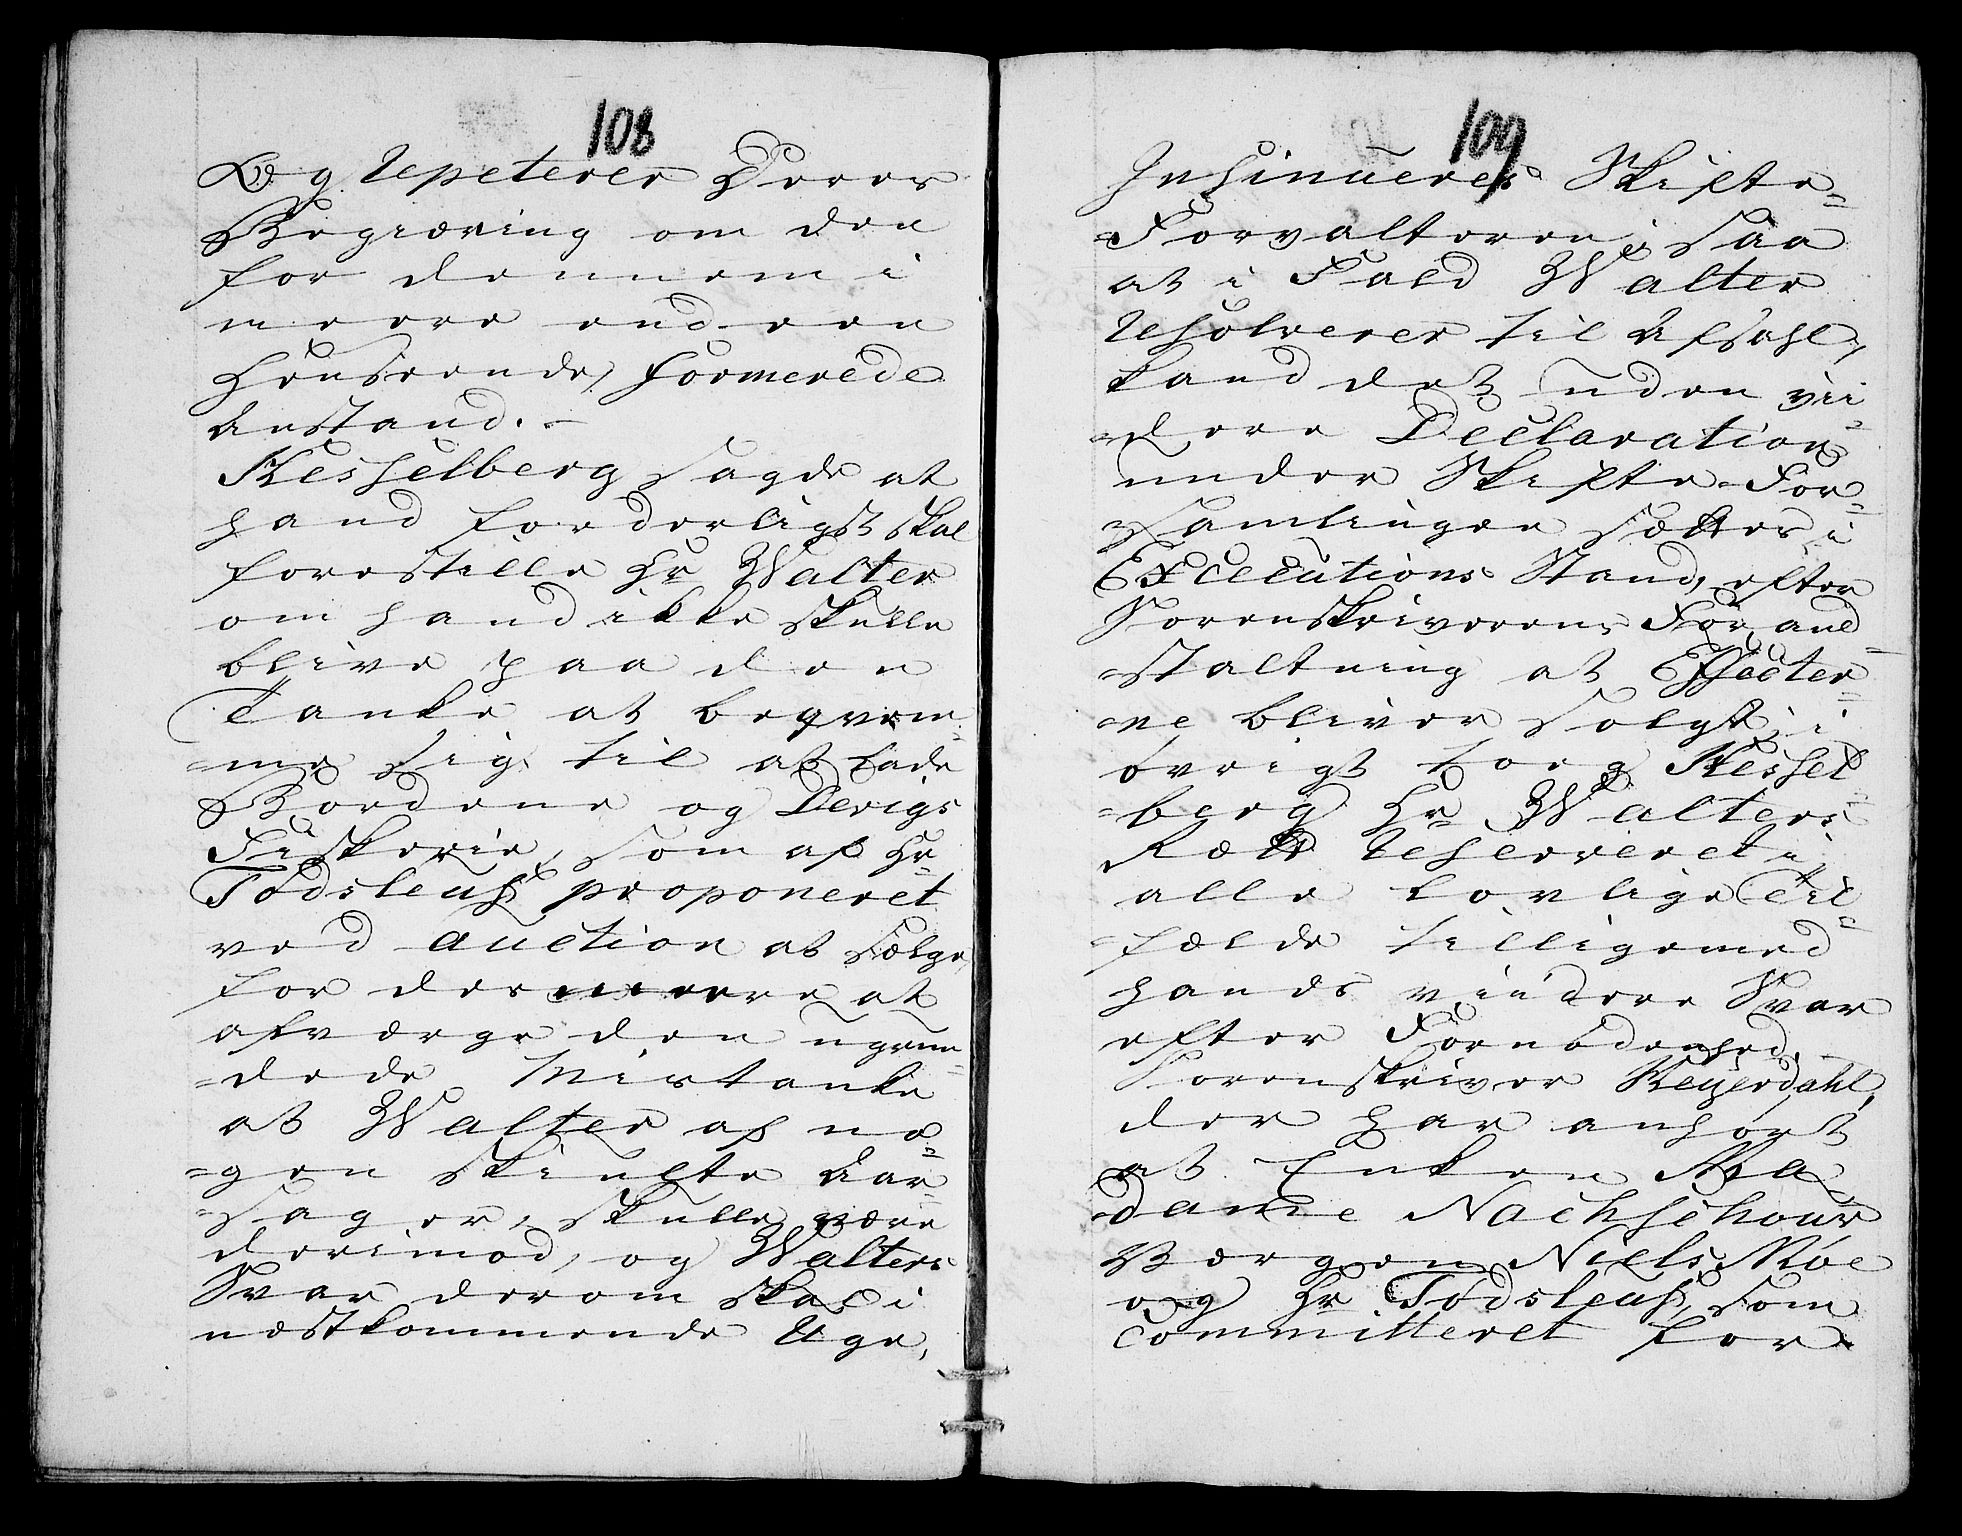 108
Og repeterer Deres
Begiæring om den
for dennem i
meere end een
Henseende, formerede
Anstand. –
Kesselberg sagde at
hand forderligst skal
forestille Hr Walter
om hand ikke skulle
blive paa den
Tanke at beqvem=
=me sig til at lade
Bordene og Devigs
Fiskerie, som af Hr
Tødsleuf proponeret
ved Auction at sælge,
for des meere at
afværge den ugrun=
=dede Mistanke
at Walter af no=
=gen skiulte Aar=
=sager, skulle være
derimod, og Walters
Svar derom skal i
næstkommende Uge,
109
Insinueres Skifte=
=Forvalteren; saa
at i Fald Walter
resolverer til Afsahl,
kand det uden vii=
=dere Declaration
under Skifte-For=
=samlingen sættes i
Executions Stand, efter
Sorenskriverens For and=
=staltning at Effecter=
=ne bliver solgt; i
øvrigt tog Kessel=
=berg Hr Walters
Rætt reserveret i
alle lovlige Til=
=fælde tilligemed
hands viidere Svar
efter Fornødenhed. –
Sorenskriver Reyerdahl,
der har anhørt
at Enken Ma=
=dame Nachschous
Bærgen Niels Moe
og Hr Tødsleuf, som
committeret for